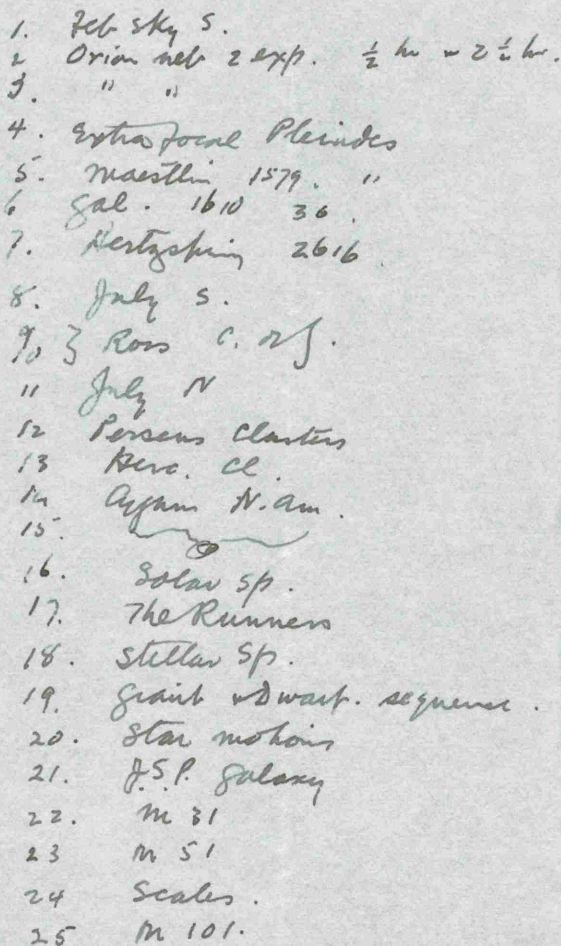 1. Feb sky S.
2 Orion neb 2 exp. ½ hr & 2 ½ hr.
3. " "
4. Extra focal Pleiades
5. Maestlin 1579. "
6 Gal. 1610 36.
7. Hertzsprung 2616
8. July S.
9, 10 } Ross C. of
11 July N
12 Perseus Clusters
13 Herc. Cl
14 Cygnus N. Am.
15.
16. Solar Sp.
17. The Runners
18. Stellar Sp.
19. Giant & Dwarf. sequence.
20. Star motions
21. J.S.P. Galaxy
22. M 31
23 M 51
24 Scales.
25 M 101.